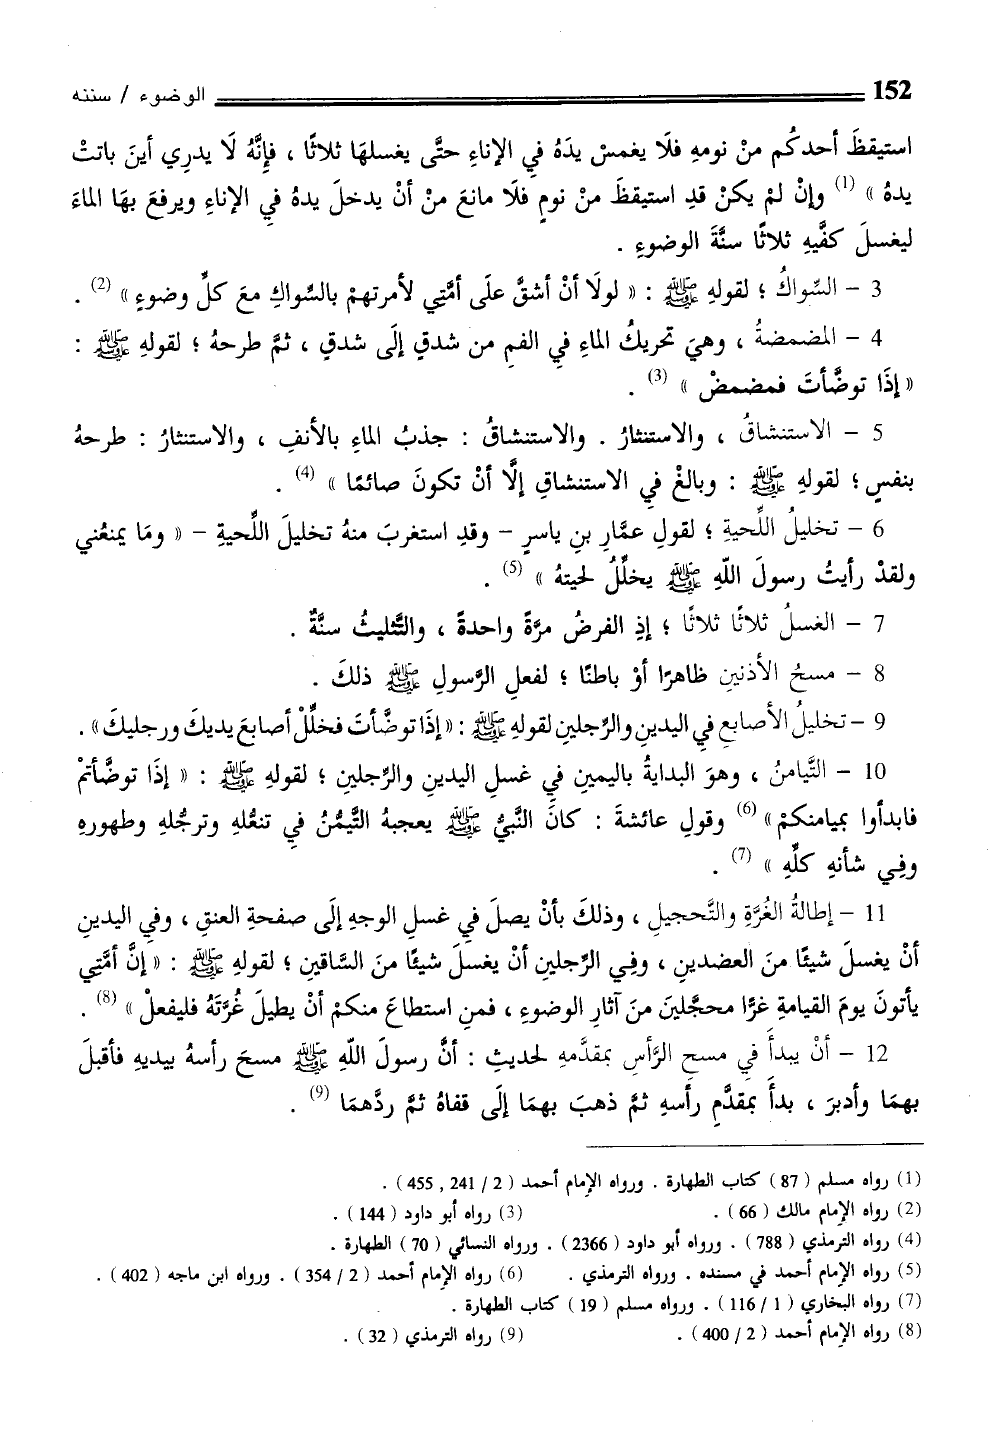 152 الوضوء / سننه
استيقظَ أحدكُم منْ نومهِ فلَا يغمسْ يدَهُ فِي الإناءِ حتَّى يغسلهَا ثلاثًا ، فإنَّهُ لَا يدرِي أينَ باتتْ
يدهُ » (1) وإنْ لمْ يكنْ قدِ استيقظَ منْ نومٍ فلَا مانعَ منْ أنْ يدخلَ يدهُ فِي الإناءِ ويرفعَ بهَا الماءَ
ليغسلَ كفَّيهِ ثلاثًا سنَّةَ الوضوءِ .
3 – السِّواكُ ؛ لقولهِ ﷺ : « لولَا أنْ أشقَّ علَى أمَّتِي لأمرتهمْ بالسِّواكِ معَ كلِّ وضوءٍ » (2) .
4 – المضمضةُ ، وهيَ تحريكُ الماءِ فِي الفمِ من شدقٍ إلَى شدقٍ ، ثمَّ طرحهُ ؛ لقولهِ ﷺ :
« إذَا توضَّأتَ فمضمضْ » (3) .
5 – الاستنشاقُ ، والاستنثارُ . والاستنشاقُ : جذبُ الماءِ بالأنفِ ، والاستنثارُ : طرحهُ
بنفسٍ ؛ لقولهِ ﷺ : وبالغْ فِي الاستنشاقِ إلَّا أنْ تكونَ صائمًا » (4) .
6 – تخليلُ اللِّحيةِ ؛ لقولِ عمَّارِ بنِ ياسرٍ – وقدِ استغربَ منهُ تخليلَ اللِّحيةِ – « ومَا يمنعُني
ولقدْ رأيتُ رسولَ اللّهِ ﷺ يخلِّلُ لحيتهُ » (5) .
7 – الغسلُ ثلاثًا ثلاثًا ؛ إذِ الفرضُ مرَّةً واحدةً ، والتَّثليثُ سنَّةٌ .
8 – مسحُ الأذنينِ ظاهرًا أوْ باطنًا ؛ لفعلِ الرَّسولِ ﷺ ذلكَ .
9 – تخليلُ الأصابعِ فِي اليدينِ والرِّجلينِ لقولهِ ﷺ : « إذَا توضَّأتَ فخلِّلْ أصابعَ يديكَ ورجليكَ » .
10 – التَّيامنُ ، وهوَ البدايةُ باليمينِ فِي غسلِ اليدينِ والرِّجلينِ ؛ لقولهِ ﷺ : « إذَا توضَّأتمْ
فابدأوا بميامنكمْ » (6) وقولِ عائشةَ : كانَ النَّبيُّ ﷺ يعجبهُ التَّيمُّنُ فِي تنعُّلهِ وترجُّلهِ وطهورهِ
وفِي شأنهِ كلِّهِ » (7) .
11 – إطالةُ الغُرَّةِ والتَّحجيلِ ، وذلكَ بأنْ يصلَ فِي غسلِ الوجهِ إلَى صفحةِ العنقِ ، وفِي اليدينِ
أنْ يغسلَ شيئًا منَ العضدينِ ، وفِي الرِّجلينِ أنْ يغسلَ شيئًا منَ السَّاقينِ ؛ لقولهِ ﷺ : « إنَّ أمَّتِي
يأتونَ يومَ القيامةِ غرًّا محجَّلينَ منْ آثارِ الوضوءِ ، فمنِ استطاعَ منكمْ أنْ يطيلَ غُرَّتَهُ فليفعلْ » (8) .
12 – أنْ يبدأَ فِي مسحِ الرَّأسِ بمقدَّمهِ لحديثِ : أنَّ رسولَ اللّهِ ﷺ مسحَ رأسهُ بيديهِ فأقبلَ
بهمَا وأدبرَ ، بدأَ بمقدَّمِ رأسهِ ثمَّ ذهبَ بهمَا إلَى قفاهُ ثمَّ ردَّهمَا (9) .
(1) رواه مسلم ( 87 ) كتاب الطهارة . ورواه الإمام أحمد ( 2 / 241 , 455 ) .
(2) رواه الإمام مالك ( 66 ) . (3) رواه أبو داود ( 144 ) .
(4) رواه الترمذي ( 788 ) . ورواه أبو داود ( 2366 ) . ورواه النسائي ( 70 ) الطهارة .
(5) رواه الإمام أحمد في مسنده . ورواه الترمذي . (6) رواه الإمام أحمد ( 2 / 354 ) . ورواه ابن ماجه ( 402 ) .
(7) رواه البخاري ( 1 / 116 ) . ورواه مسلم ( 19 ) كتاب الطهارة .
(8) رواه الإمام أحمد ( 2 / 400 ) . (9) رواه الترمذي ( 32 ) .